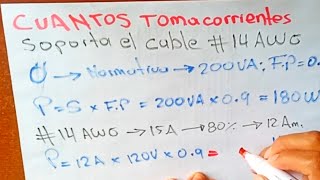 CUANTOS Tomacorrientes
Soporta el cable #14 AWG
→ Normativa → 200VA; F.P=0.
P=S x F.P = 200VA x 0.9 = 180W
#14 AWG → 15A → 80% → 12 Am.
P= 12A x 120V x 0.9 =